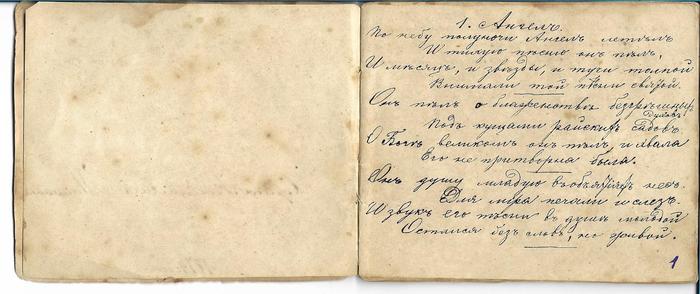 1. Ангелъ.
По небу полуночи Ангелъ летѣлъ
И тихую пѣсню онъ пѣлъ,
И мѣсяцъ, и звѣзды, и тучи толпой
Внимали той пѣсни святой.
Онъ пѣлъ о блаженствѣ безгрѣшныхъ
духовъ
Подъ кущами райскихъ садовъ
О Богѣ великомъ онъ пѣлъ, и хвала
Его не притворна была.
Онъ душу младую въ объятіяхъ несъ.
Для міра печали и слезъ.
И звукъ его пѣсни въ душѣ молодой
Остался безъ словъ, но живой.
1